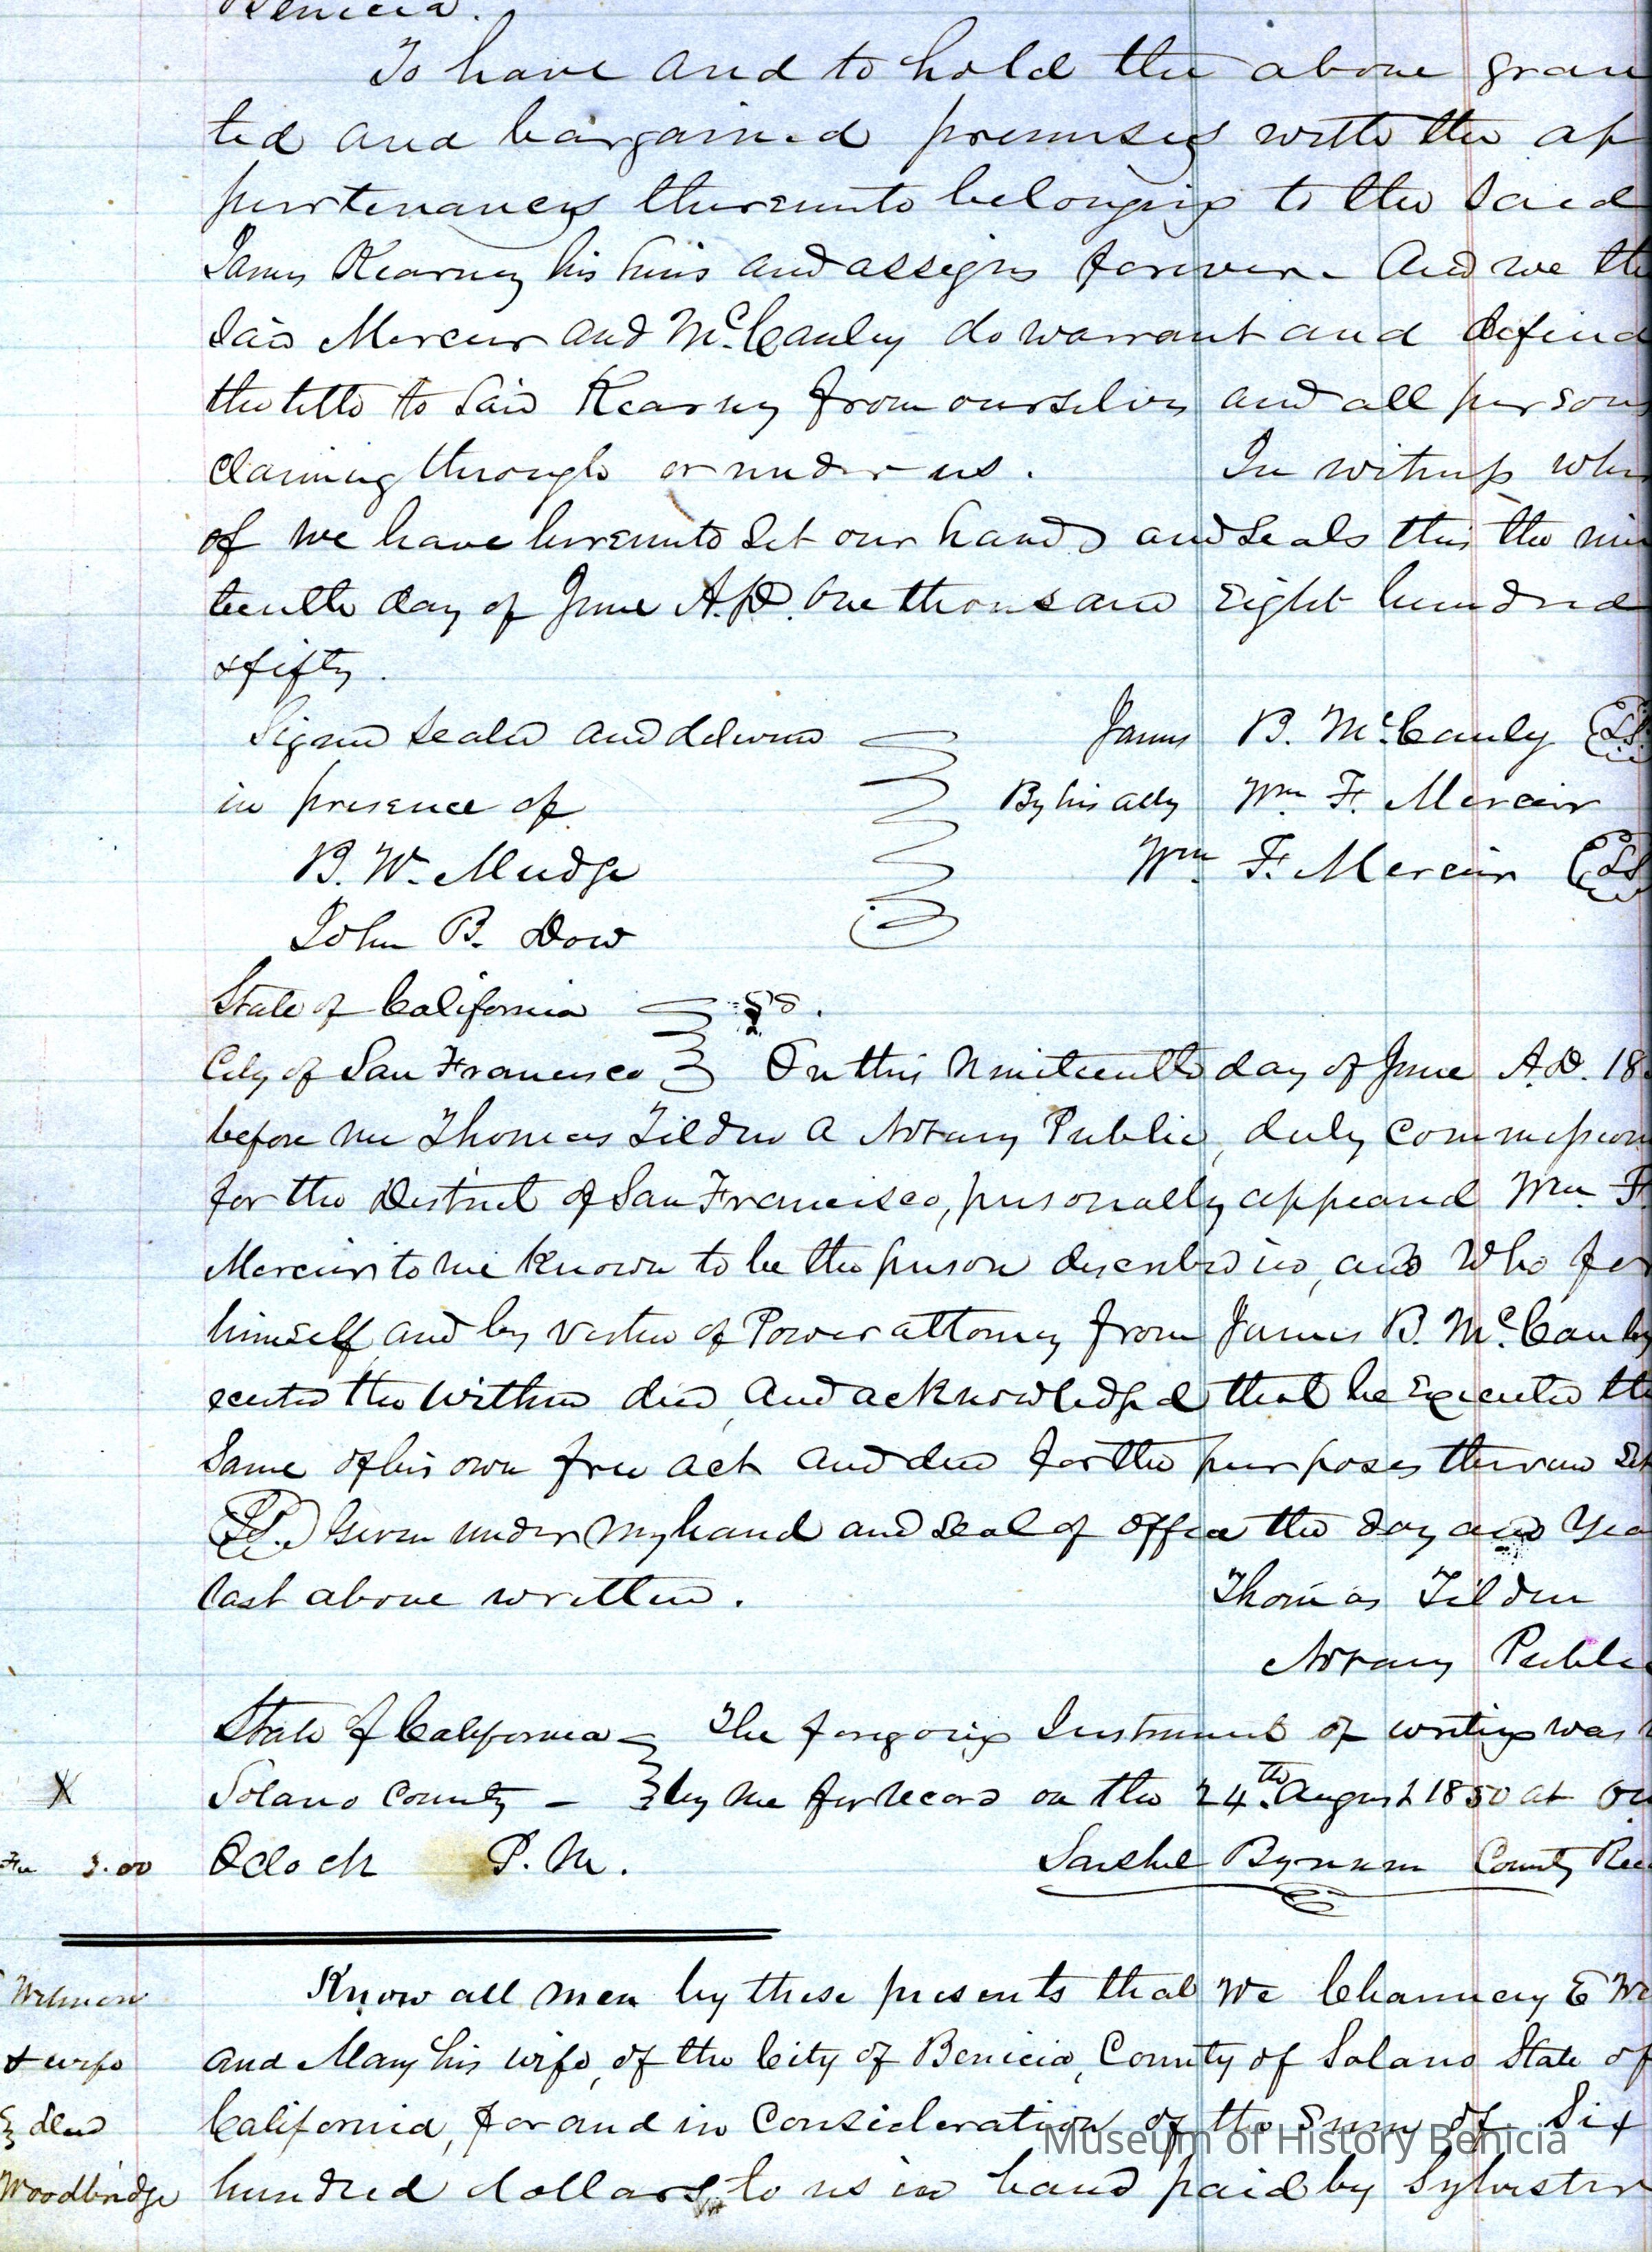 Benicia.
To have and to hold the above gran
ted and bargained premises with the ap
purtenances thereunto belonging to the said
James Kearney his heirs and assigns forever. And we the
said Mercier and McCauley do warrant and defend
the title to said Kearney from ourselves and all persons
claiming through or under us. In witness wher
of we have hereunto set our hands and seals this the nin
teenth day of June A.D. one thousand eight hundred
& fifty.
Signed sealed and delivered James B. McCauley LS
in presence of By his atty Wm F. Mercier
B. W. Mudge Wm F. Mercier LS
John B. Dow
State of California ss.
City of San Francisco On this Nineteenth day of June A.D. 18
before me Thomas Tilden a Notary Public, duly commission
for the District of San Francisco, personally appeared Wm. F.
Mercier to me known to be the person described in, and who for
himself and by virtue of Power attorney from James B. McCauley
ecuted the within deed, and acknowledged that he executed the
same of his own free act and deed for the purposes therein set
L.S. Given under my hand and seal of office the day and Yea
last above written. Thomas Tilden
Notary Public
State of California The foregoing Instrument of writing was
X Solano County by me for record on the 24th August 1850 at on
Fee 3.00 Oclock P.M. County Rec
Know all men by these presents that We Chauncey E We
and Mary his wife, of the City of Benicia, County of Solano State of
& wife
California, for and in consideration of the sum of Six
deed
hundred dollars to us in hand paid by Sylvester
Woodbridge
Museum of History Benicia